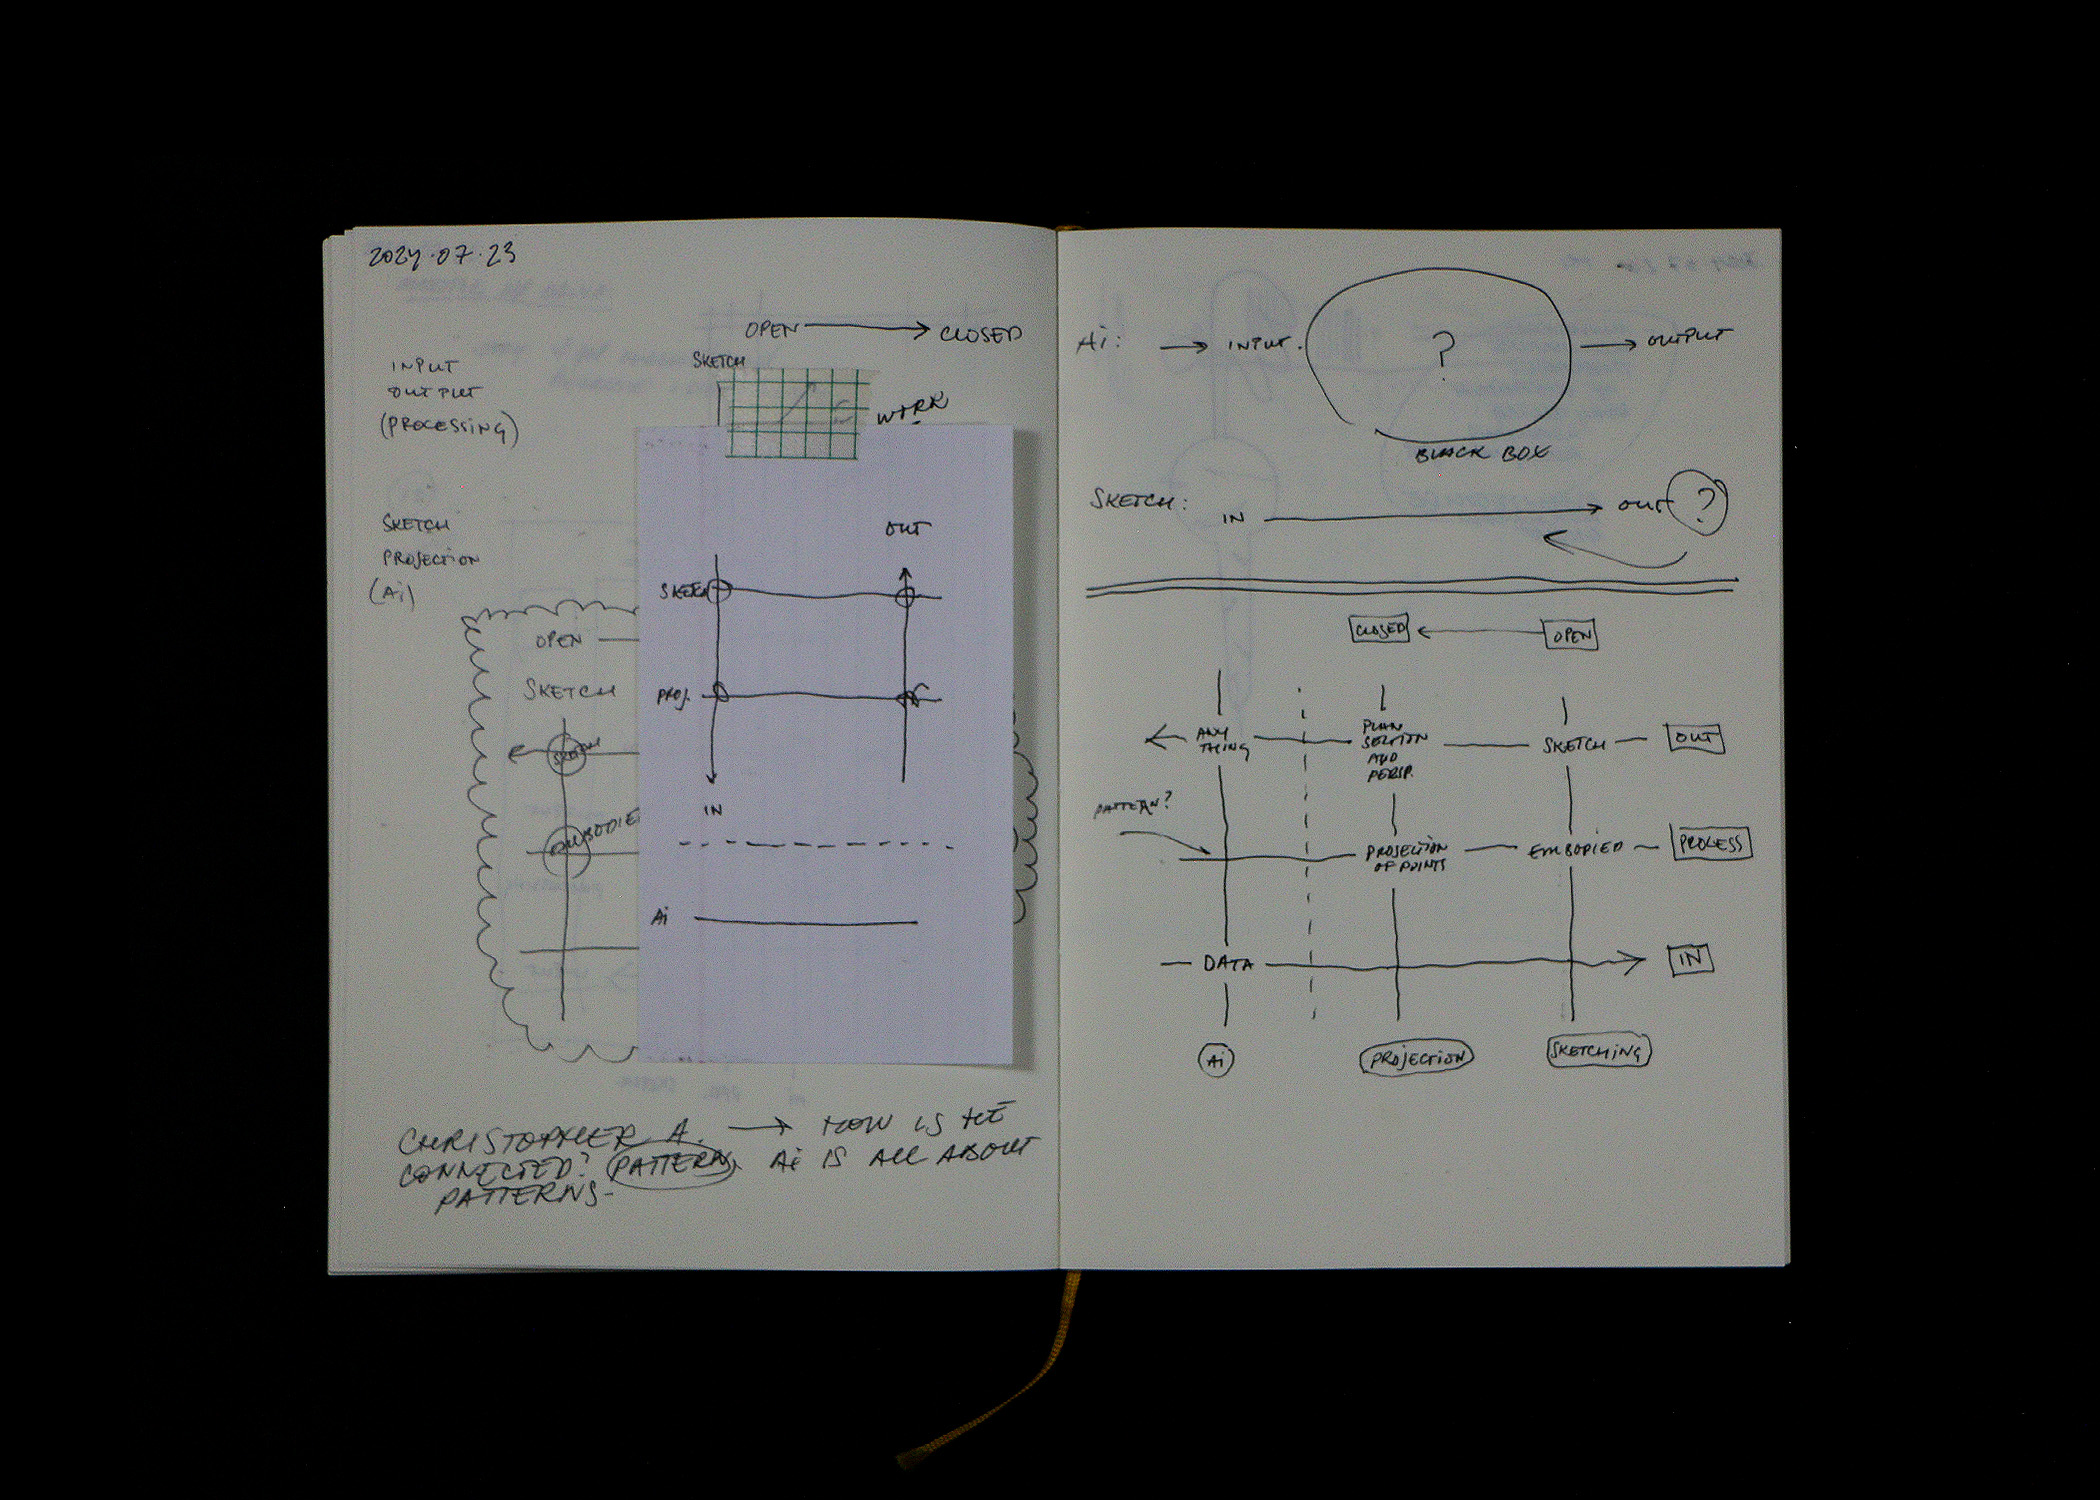 2024.07.23
OPEN → CLOSED
SKETCH
INPUT
OUTPUT
(PROCESSING)
WORK
SKETCH
PROJECTION
(Ai)
OPEN
SKETCH
SKETCH
EMBODIED
OUT
SKETCH
PROJ.
IN
Ai
CHRISTOPHER A. → HOW IS HE
CONNECTED? PATTERN. Ai IS ALL ABOUT
PATTERNS-
Ai: → INPUT. ? → OUTPUT
BLACK BOX
SKETCH: IN → OUT ?
CLOSED ← OPEN
ANY
THING
PLAN
SECTION
AND
PERSP.
SKETCH
OUT
PATTERN?
PROJECTION
OF POINTS
EMBODIED
PROCESS
DATA
IN
Ai
PROJECTION
SKETCHING